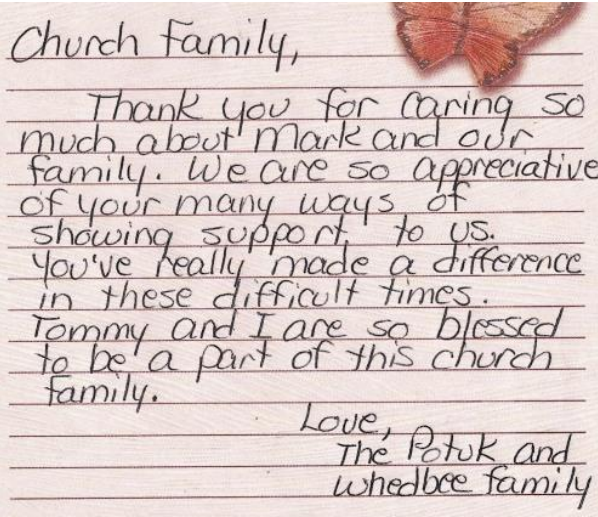 Church Family,
Thank you for caring so
much about Mark and our
family. We are so appreciative
of your many ways of
showing support to us.
You've really made a difference
in these difficult times.
Tommy and I are so blessed
to be a part of this church
family.
Love,
The Potuk and
Whedbee family